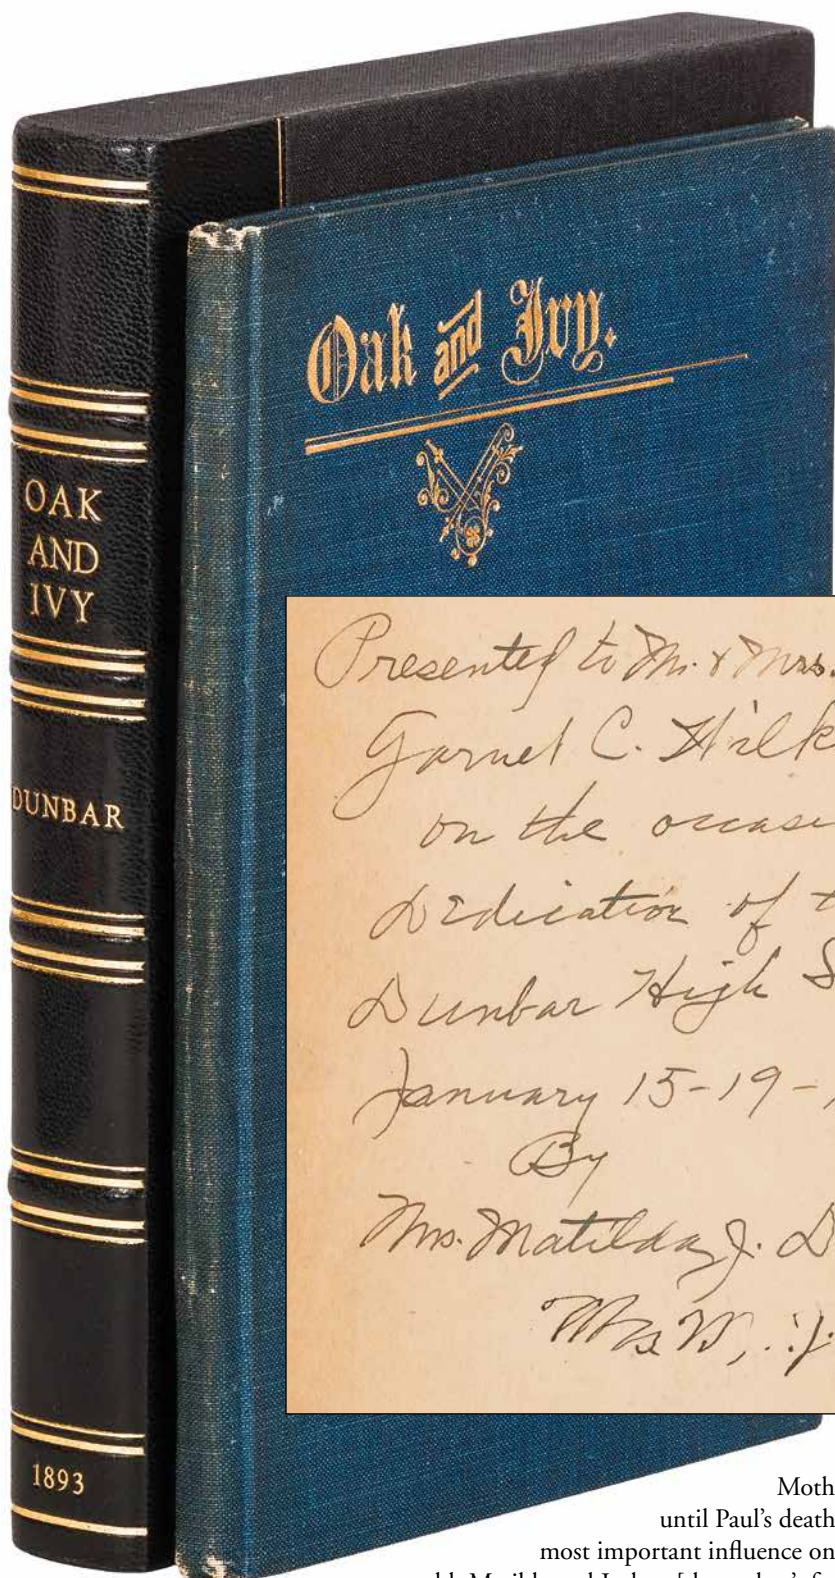 OAK
AND
IVY
DUNBAR
1893
Oak and Ivy.
Presented to Mr. & Mrs.
Garnet C. Wilk
on the occasi
Dedication of t
Dunbar High S
January 15-19-
By
Mrs. Matilda J. D
Mrs W, . J.
Moth
until Paul's death
most important influence on